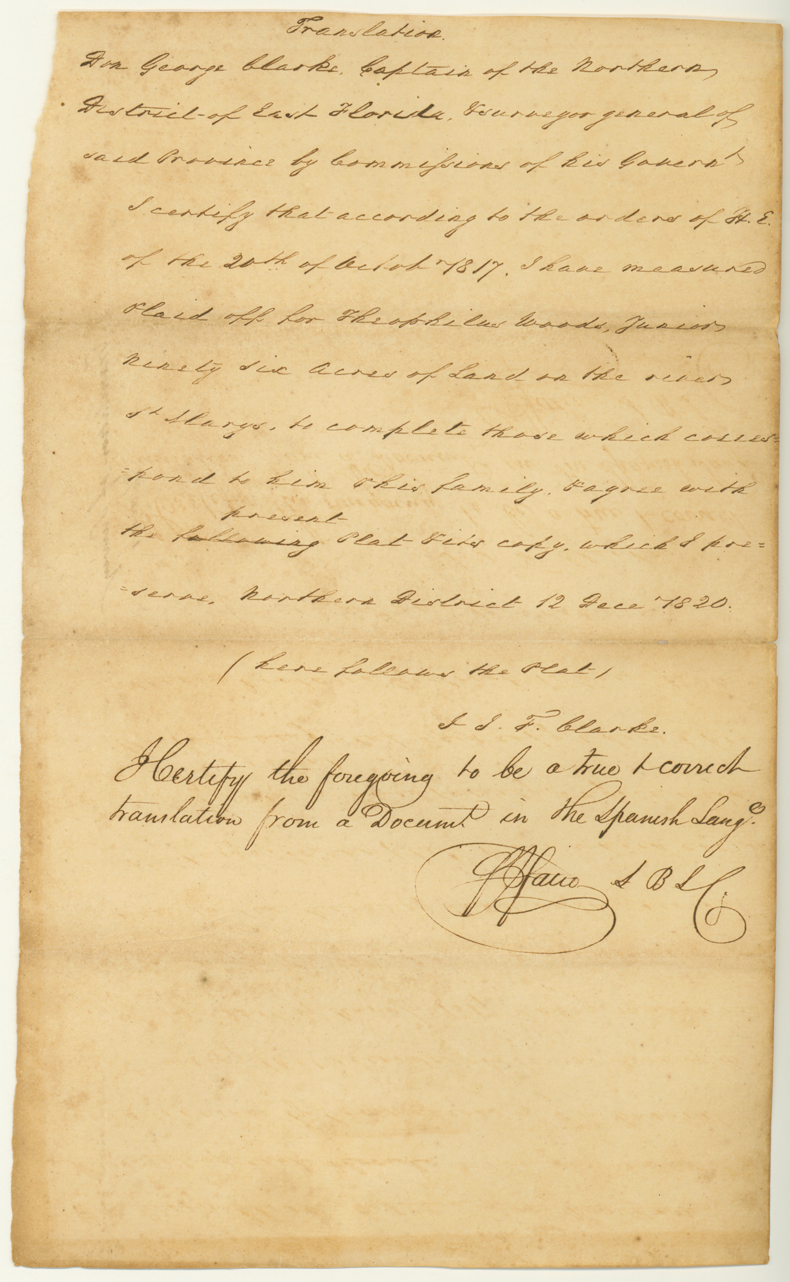 Translation.
Don George Clarke, Captain of the Northern
District of East Florida, & surveyor general of
said Province by Commissions of his Governt
I certify that according to the orders of H. E.
of the 20th of Octobr 1817, I have measured
& laid off for Theophilus Woods, Junior
Ninety six Acres of Land on the river
St Marys, to complete those which corres=
=pond to him & his family, & agree with
present
the following Plat & its copy, which I pre=
=serve, Northern District 12 Decer 1820.
(here follows the Plat)
J. F. Clarke.
I Certify the foregoing to be a true & correct
translation from a Documt. in the Spanish Lange.
S B L C